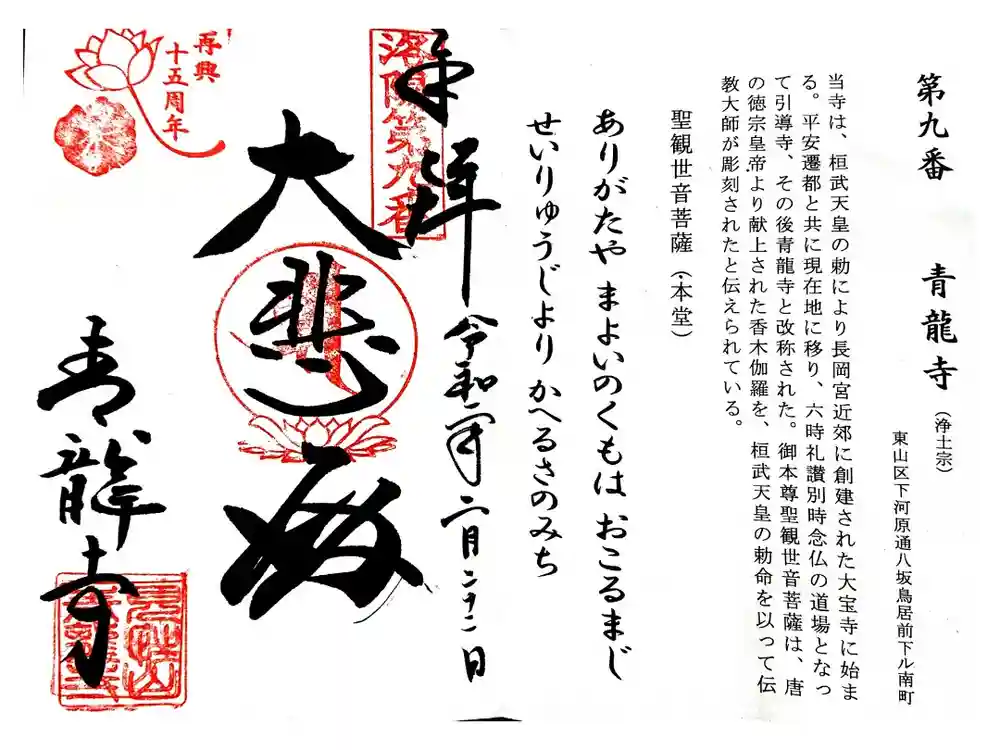 第九番 青龍寺(浄土宗)
東山区下河原通八坂鳥居前下ル南町
当寺は、桓武天皇の勅により長岡宮近郊に創建された大宝寺に始ま
る。平安遷都と共に現在地に移り、六時礼讃別時念仏の道場となっ
て引導寺、その後青龍寺と改称された。御本尊聖観世音菩薩は、唐
の徳宗皇帝より献上された香木伽羅を、桓武天皇の勅命を以って伝
教大師が彫刻されたと伝えられている。
聖観世音菩薩(本堂)
ありがたや まよいのくもは おこるまじ
せいりゅうじより かへるさのみち
奉拝 令和二年二月二十二日
洛陽第九番
大悲殿
青龍寺
再興
十五周年